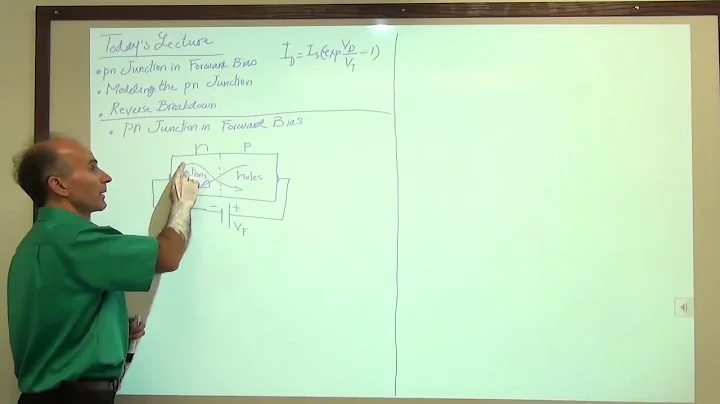 Today's Lecture
• pn Junction in Forward Bias
• Modeling the pn Junction
• Reverse Breakdown
I_D = I_S(exp V_D/V_T − 1)
• Pn Junction in Forward Bias
n p
holes
− +
V_F